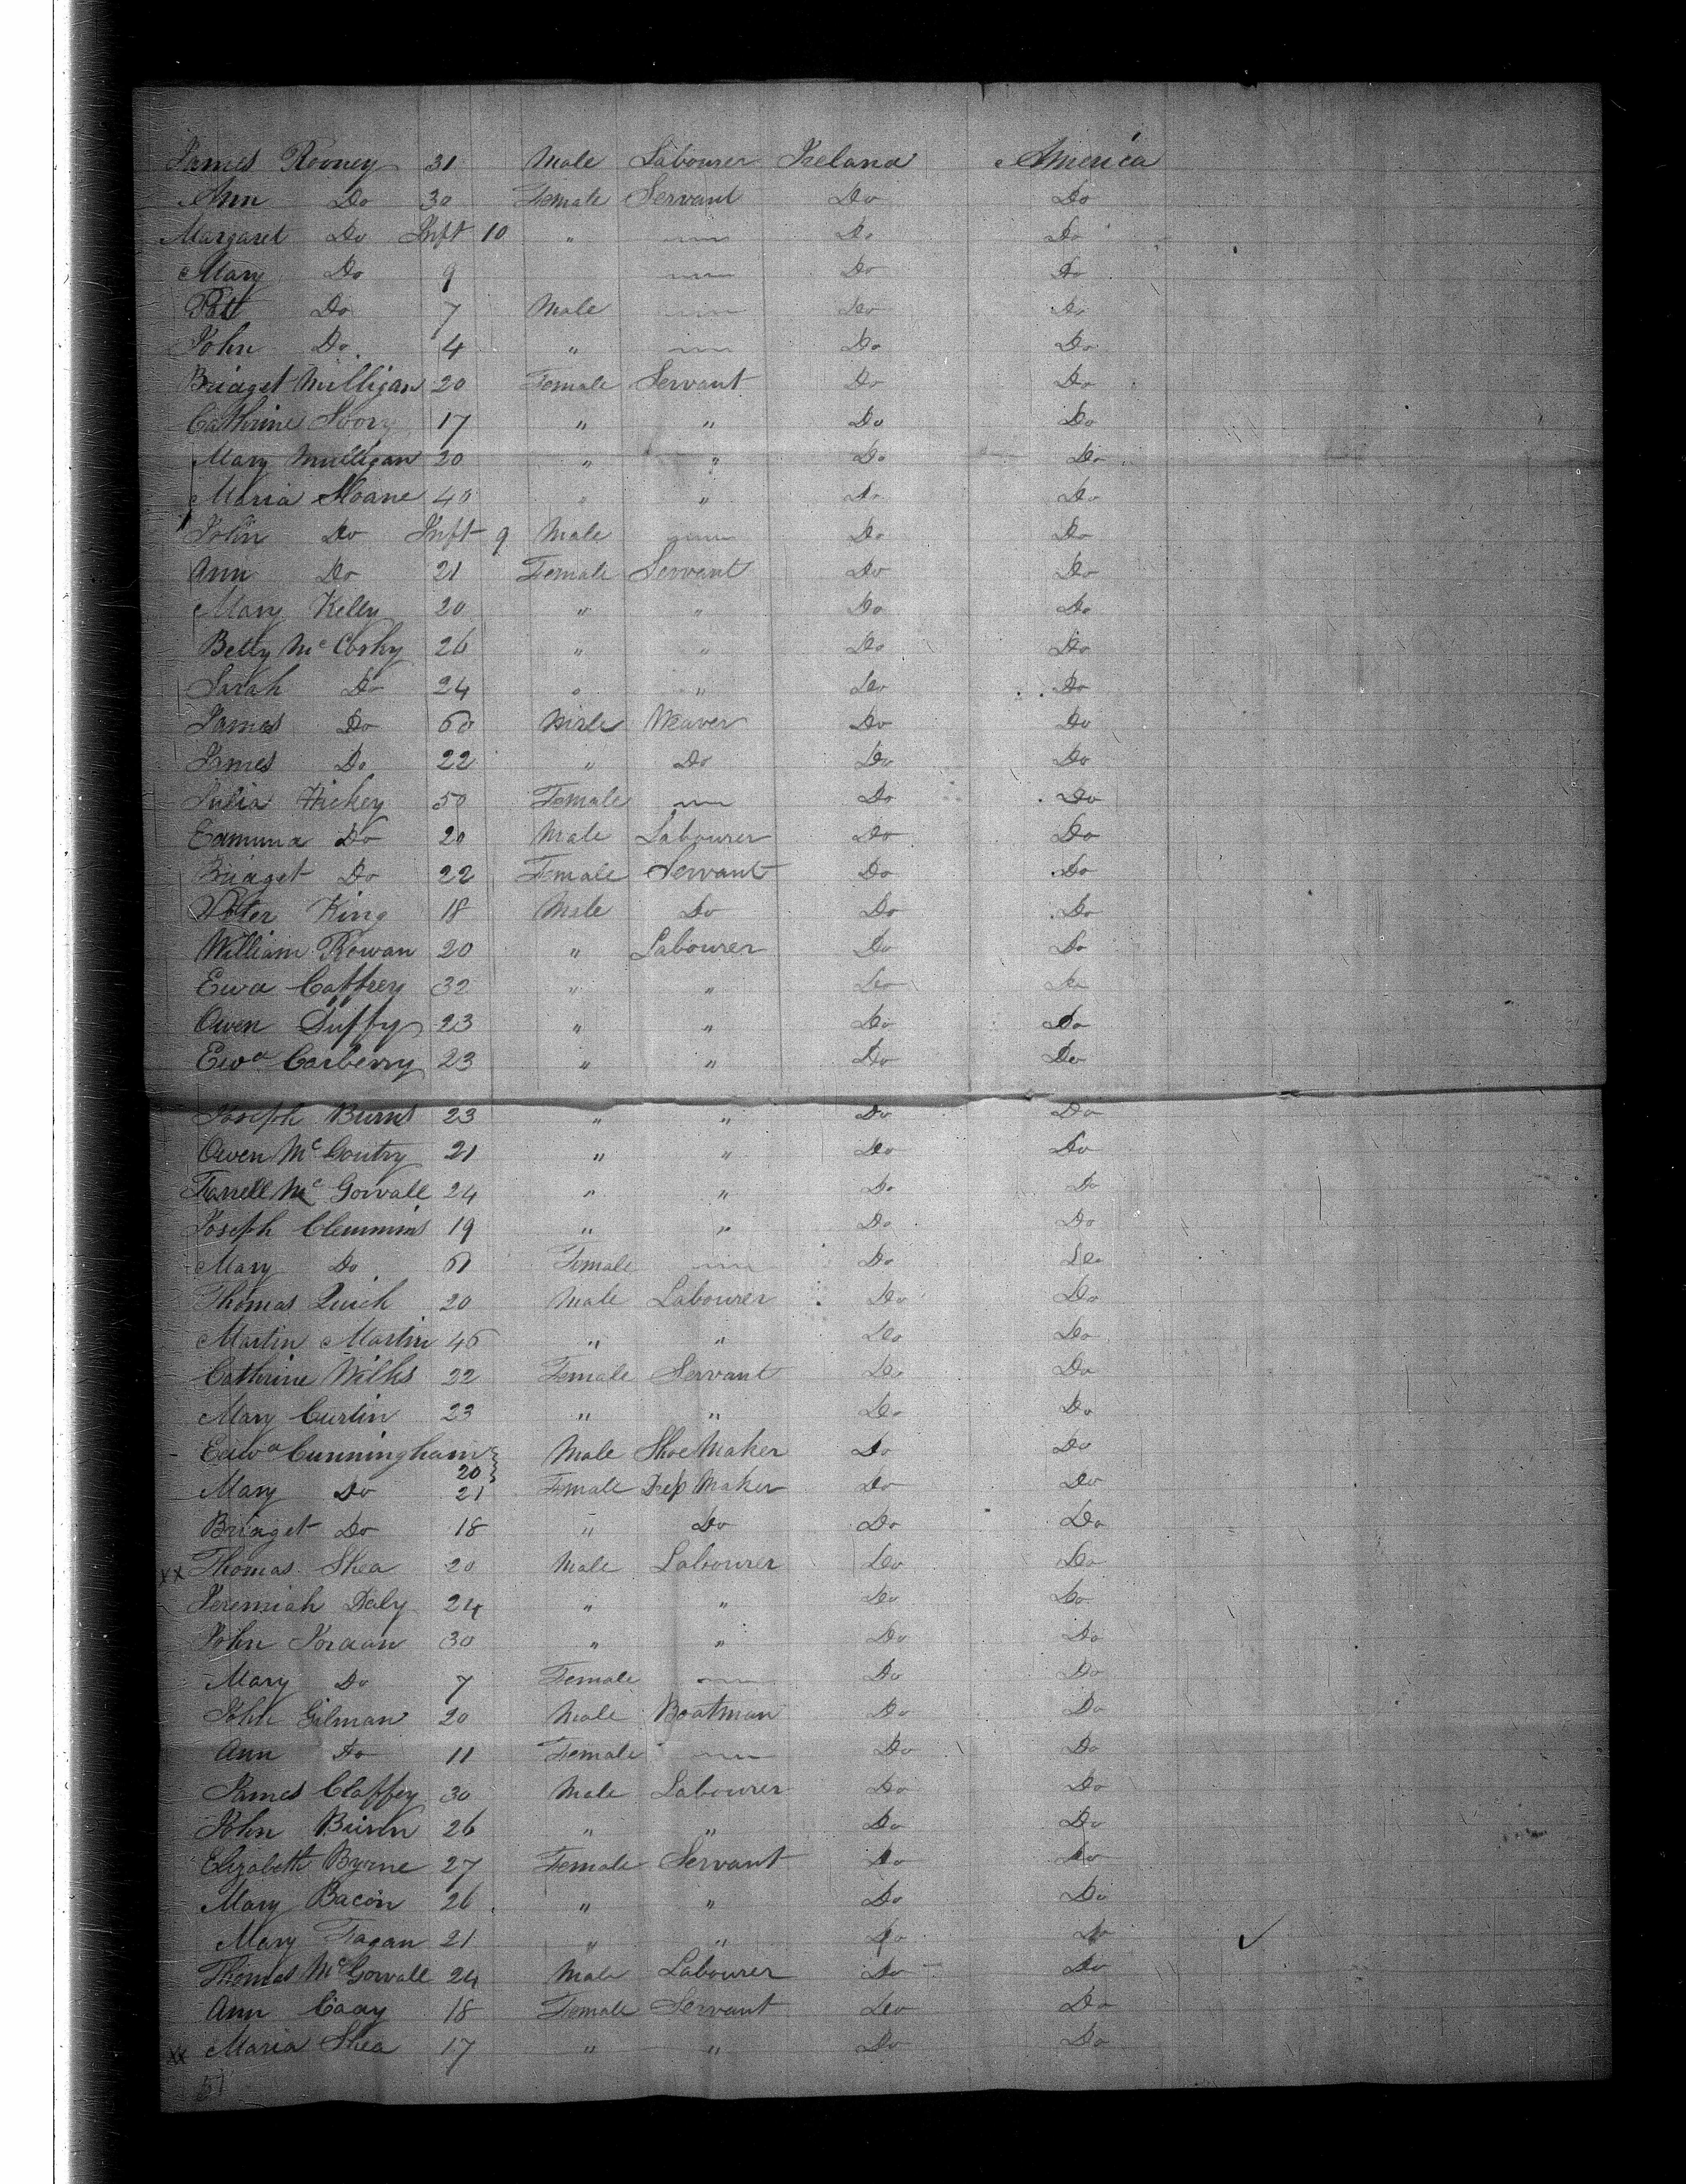 James Rooney 31 Male Labourer Ireland America
Ann Do 30 Female Servant Do Do
Margaret Do Inft 10 " — Do Do
Mary Do 9 — Do Do
Patt Do 7 Male — Do Do
John Do 4 " — Do Do
Bridget Milligan 20 Female Servant Do Do
Cathrine 17 " " Do Do
Mary Mulligan 20 " " Do Do
Maria Sloane 40 " " Do Do
John Do Inft 9 Male — Do Do
Ann Do 21 Female Servant Do Do
Mary Kelly 20 " " Do Do
Betty Mc Coshy 26 " " Do Do
Sarah Do 24 " " Do Do
James Do 60 Male Weaver Do Do
James Do 22 " Do Do Do
Julia Hickey 50 Female — Do Do
Edmund Do 20 Male Labourer Do Do
Bridget Do 22 Female Servant Do Do
Peter King 18 Male Do Do Do
William Rowan 20 " Labourer Do Do
Ewd Caffrey 32 " " Do Do
Owen Duffy 23 " " Do Do
Ewd Carberry 23 " " Do Do
Joseph Burns 23 " " Do Do
Owen Mc Goutry 21 " " Do Do
Farrell Mc Gowall 24 " " Do Do
Joseph Clemmins 19 " " Do Do
Mary Do Female — Do Do
Thomas Quick 20 Male Labourer Do Do
Martin Martin 45 " " Do Do
Cathrine Wilks 22 Female Servant Do Do
Mary Curtin 23 " " Do Do
Edwd Cunningham 20 Male Shoe Maker Do Do
Mary Do 21 Female Dress Maker Do Do
Bridget Do 18 " Do Do Do
xx Thomas Shea 20 Male Labourer Do Do
Jeremiah Daly 24 " " Do Do
John Jordan 30 " " Do Do
Mary Do 7 Female — Do Do
John Gilman 20 Male Boatman Do Do
Ann Do 11 Female — Do Do
James Claffey 30 Male Labourer Do Do
John Burn 26 " " Do Do
Elizabeth Byrne 27 Female Servant Do Do
Mary Bacon 26 " " Do Do
Mary Fagan 21 " " Do Do ✓
Thomas McGowall 24 Male Labourer Do Do
Ann Cady 18 Female Servant Do Do
xx Maria Shea 17 " " Do Do
51